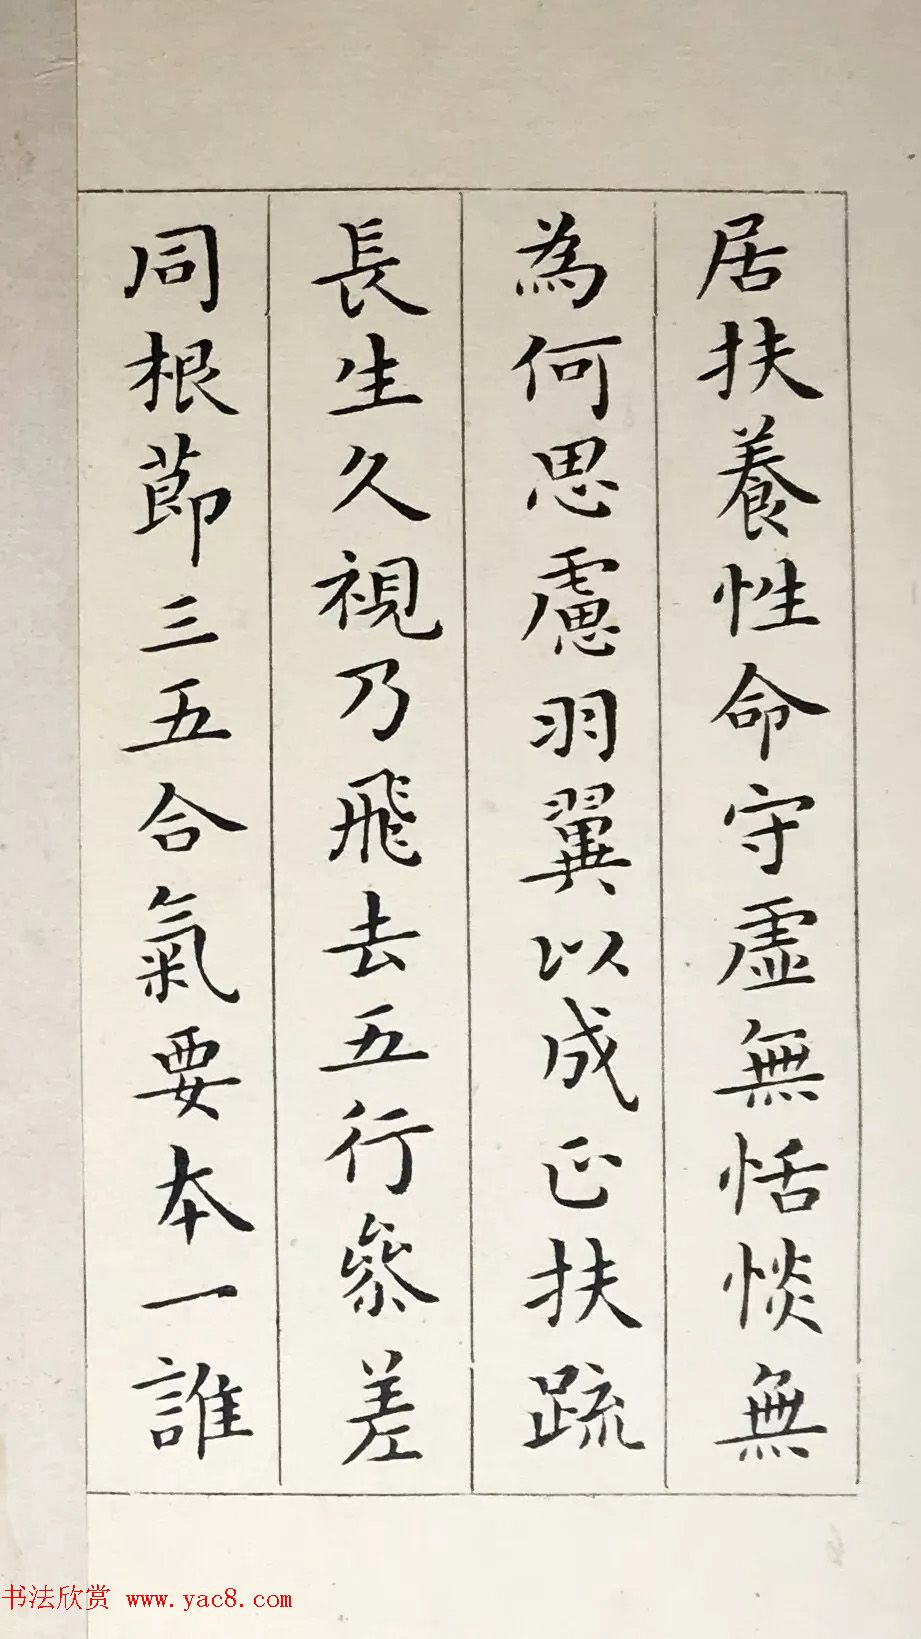 居扶養性命守虛無恬惔無
為何思慮羽翼以成正扶疏
長生久視乃飛去五行參差
同根節三五合氣要本一誰
书法欣赏 www.yac8.com